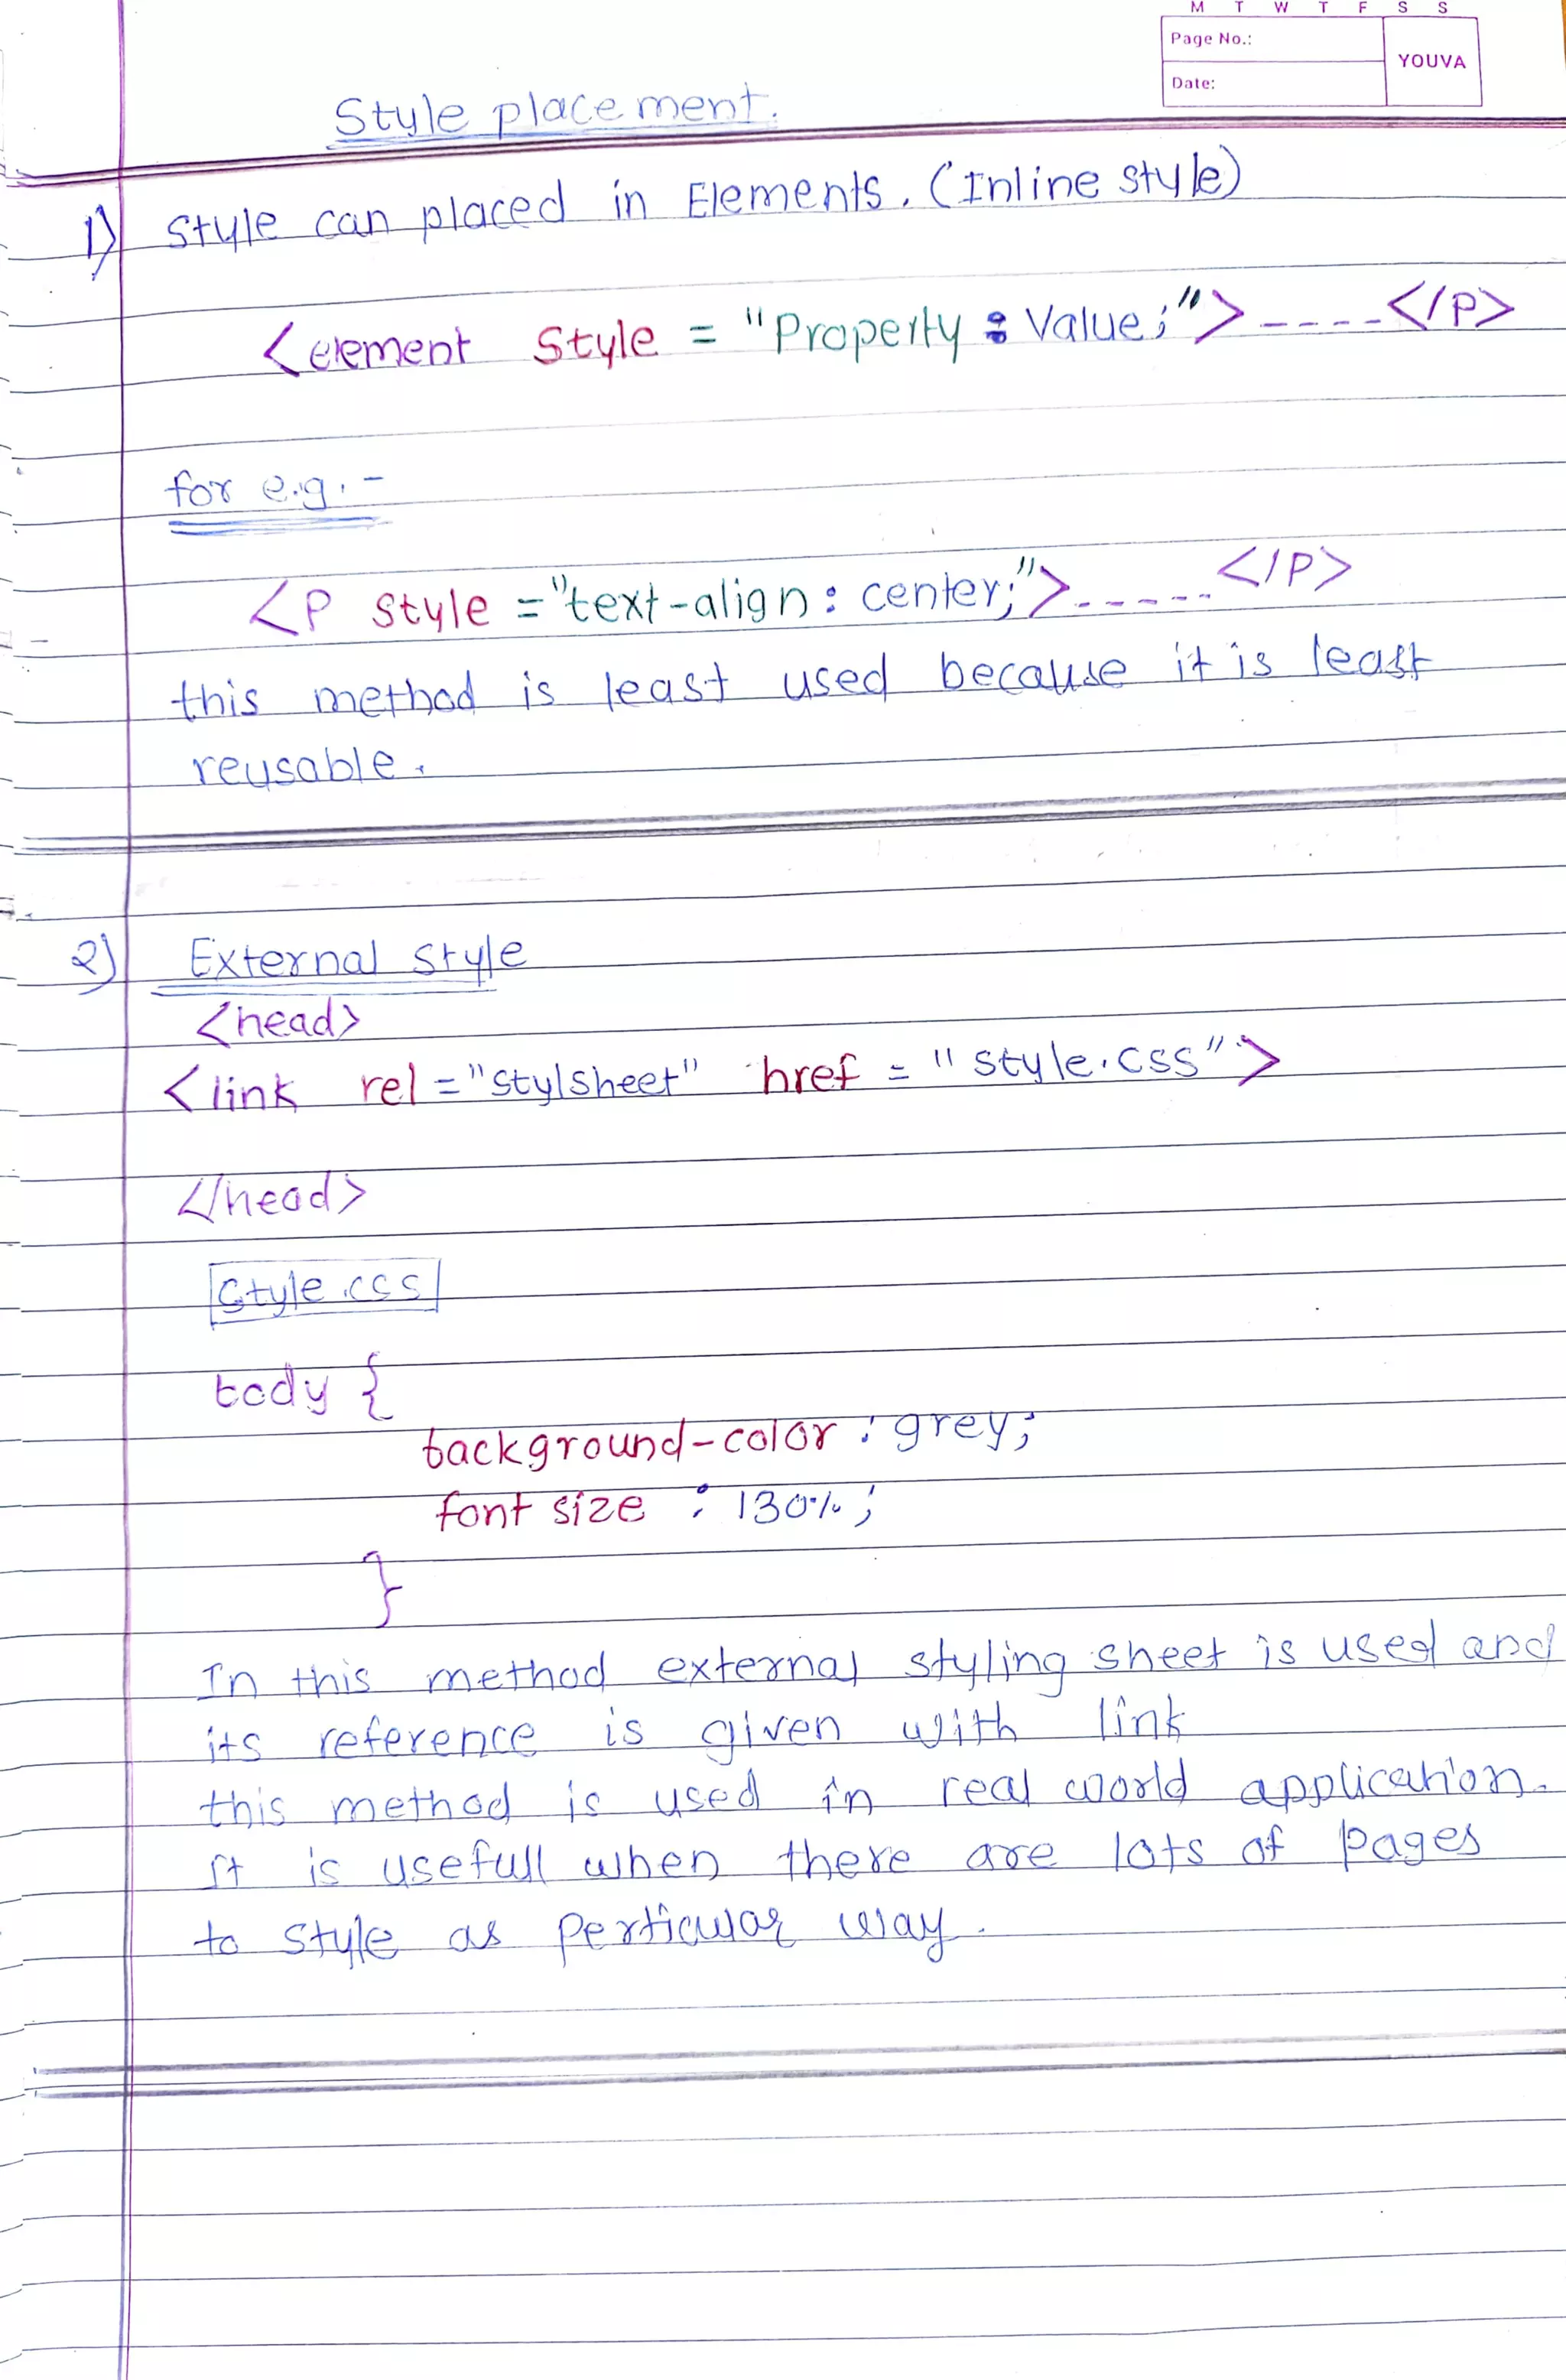 M T W T F S S
Page No.:
YOUVA
Date:
Style placement.
1) Style can placed in Elements. (Inline style)
<element Style = "Property : Value;">----</p>
for e.g. -
<P style ="text-align: center;">-----</p>
this method is least used because it is least
reusable.
2) External style
<head>
<link rel="stylsheet" href = "style.css">
</head>
Style.css
body {
background-color : grey;
font size : 130%;
}
In this method external styling sheet is used and
its reference is given with link
this method is used in real world application.
It is usefull when there are lots of pages
to style as perticular way.